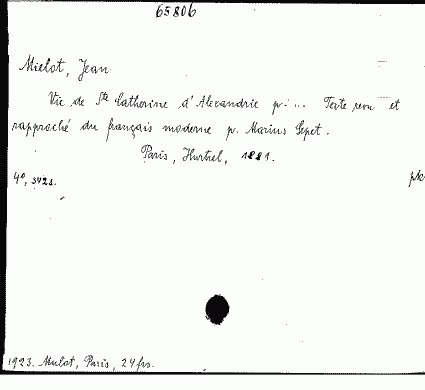 65806
Mielot, Jean
Vie de Ste Catherine d'Alexandrie p. ... Texte revu et
rapproché du français moderne p. Marius Sepet.
Paris, Hurtrel, 1881.
4°, 342 s.
1923. Mulot, Paris, 24 frs.